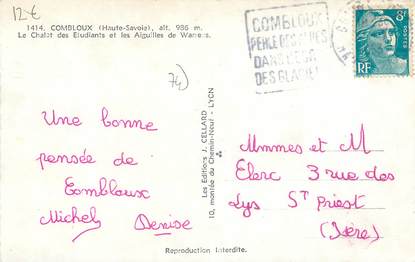 12 €
1414. COMBLOUX (Haute-Savoie), alt. 986 m.
Le Chalet des Etudiants et les Aiguilles de Warens.
COMBLOUX
PERLE DES ALPES
DANS L'ECRIN
DES GLACIERS
8F
RF
POSTES
74)
Une bonne
pensée de
Combloux
Michel Denise
Les Editions J. CELLARD - LYON
10, montée du Chemin-Neuf
Mmmes et M
Clerc 3 rue des
Lys ST Priest
(Isère)
Reproduction Interdite.